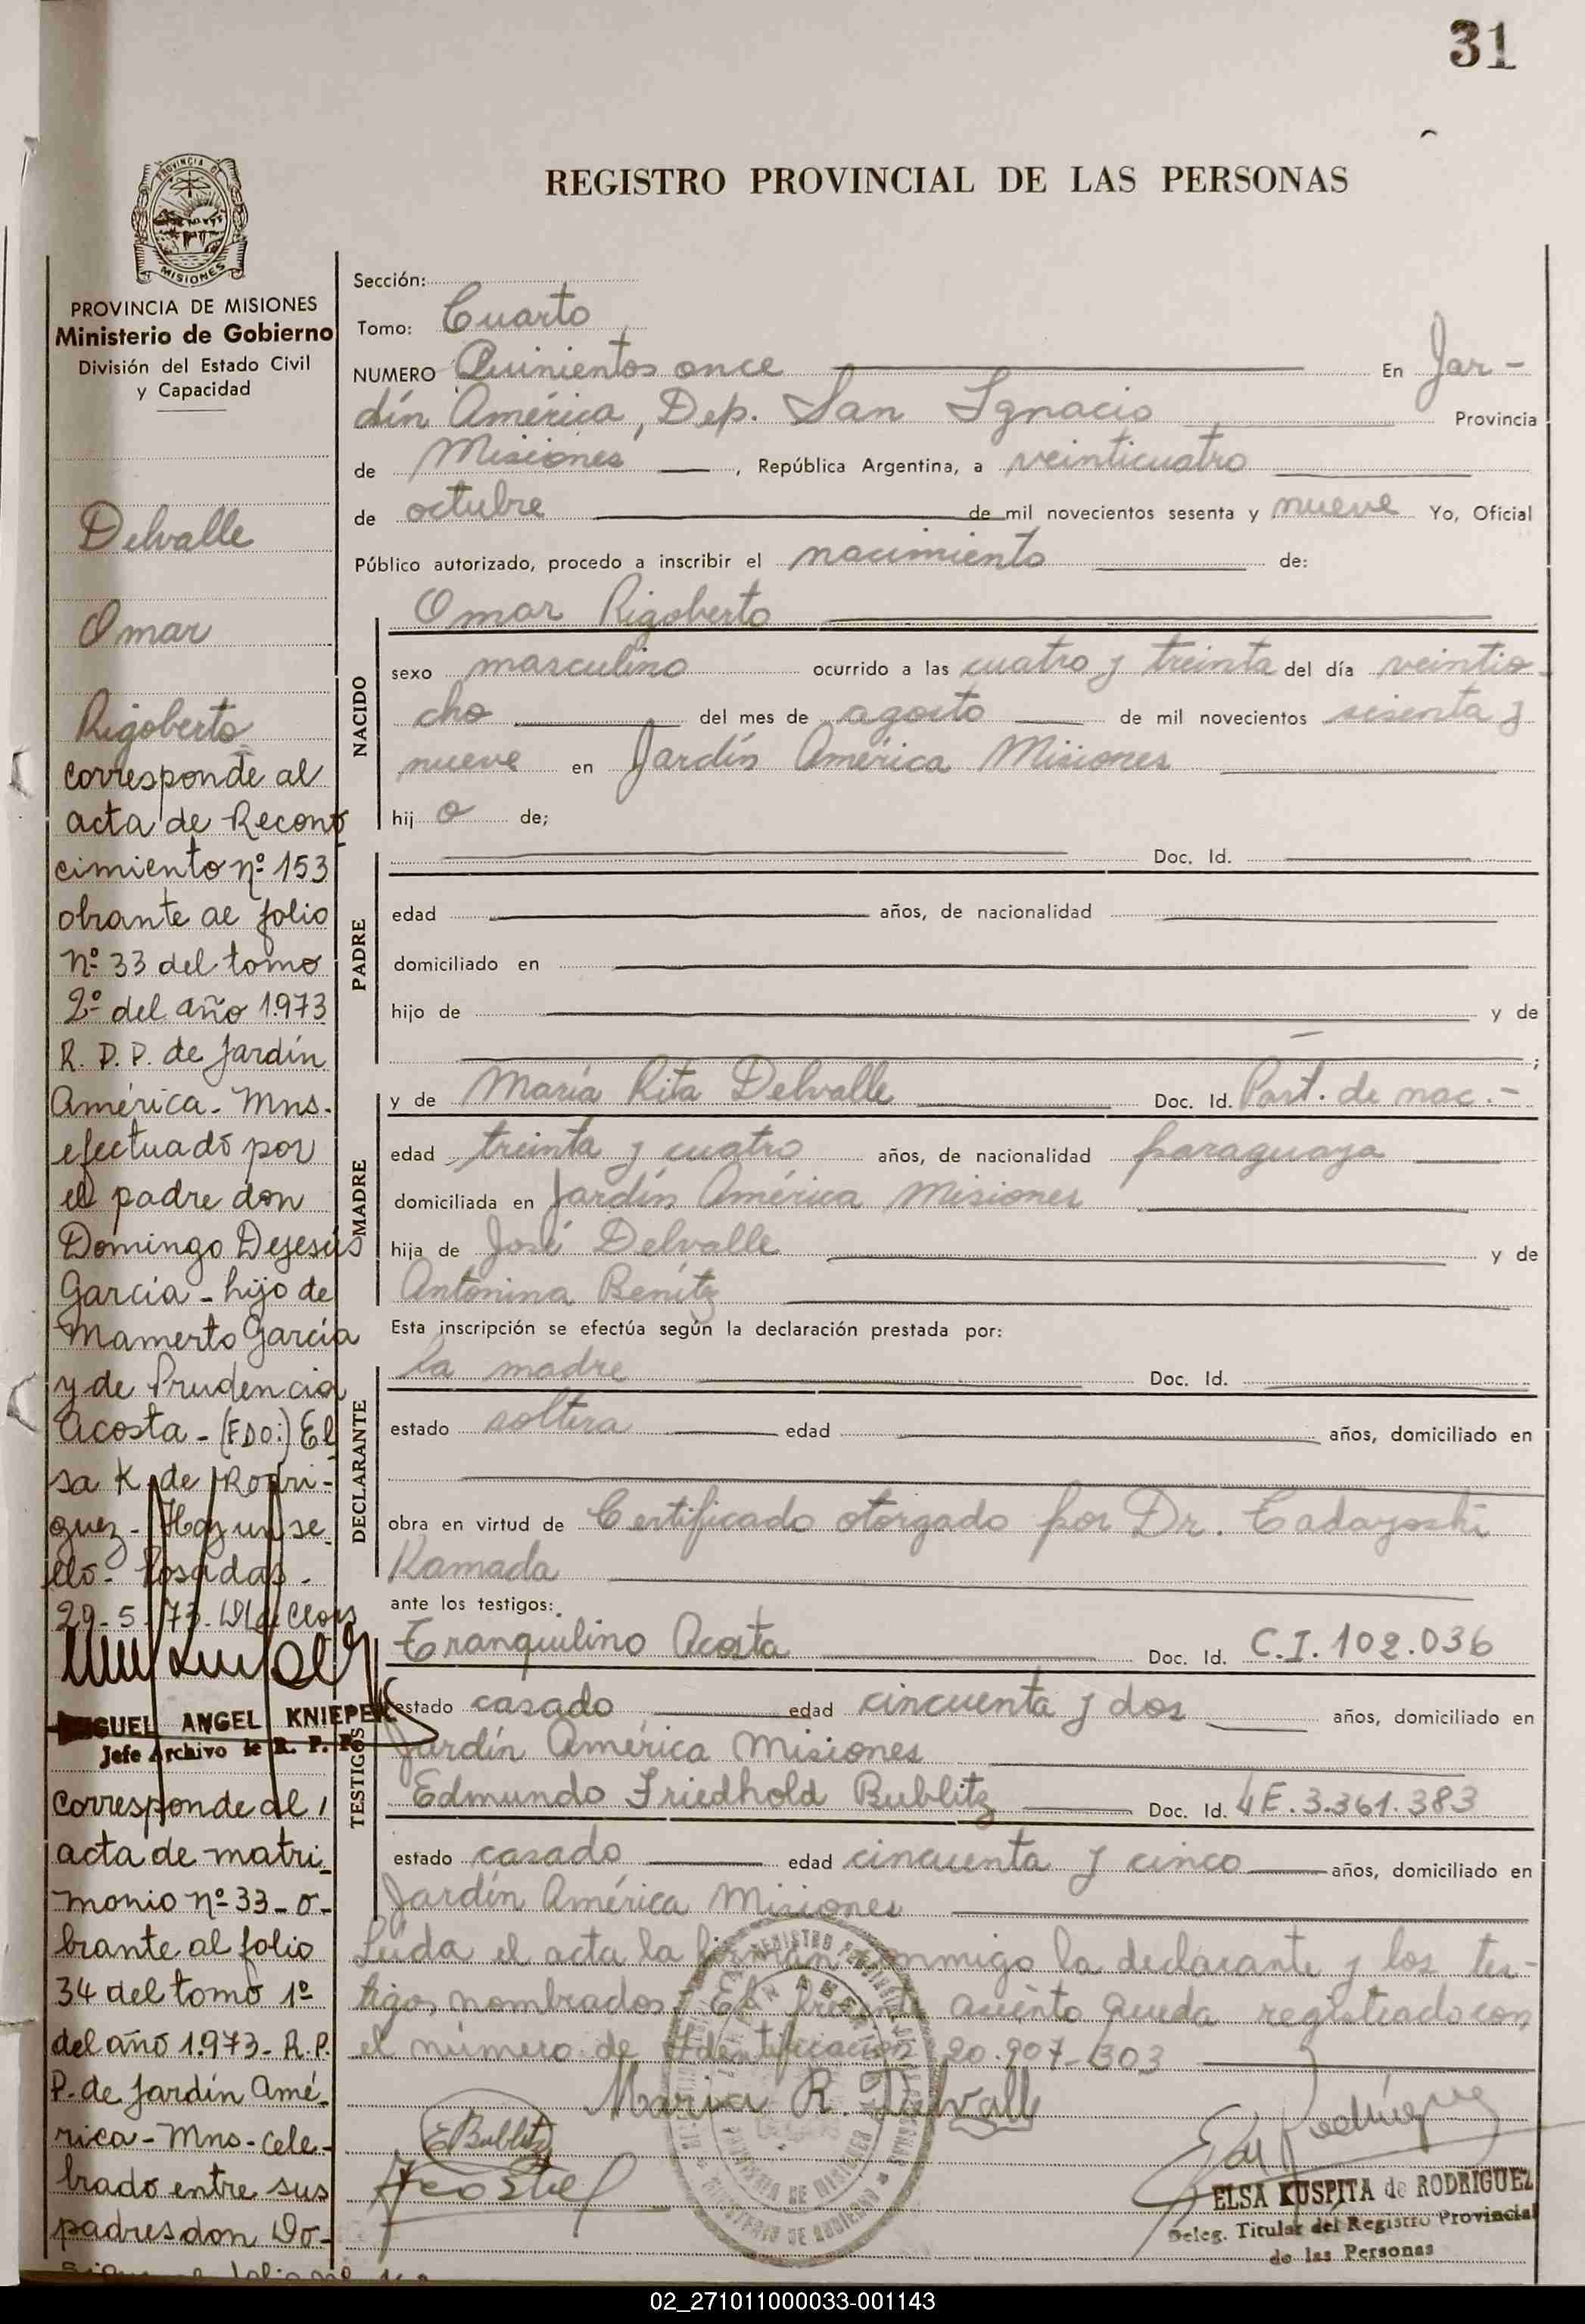 31
REGISTRO PROVINCIAL DE LAS PERSONAS
PROVINCIA
MISIONES
PROVINCIA DE MISIONES
Ministerio de Gobierno
División del Estado Civil
y Capacidad
Delvalle
Omar
Rigoberto
corresponde al
acta de Recono
cimiento nº 153
obrante al folio
Nº 33 del tomo
2º del año 1.973
R. P. P. de Jardín
América - Mns.
efectuado por
el padre don
Domingo Dejesús
García - hijo de
Mamerto García
y de Prudencia
Acosta - (FDO:) El
sa K. de Rodri-
guez - Hay un se
llo - Posadas -
29-5-73.
MIGUEL ANGEL KNIEPER
Jefe Archivo de R. P. P.
Corresponde al
acta de matri
monio nº 33 - o-
brante al folio
34 del tomo 1º
del año 1.973 - R. P.
P. de Jardín Amé-
rica - Mns - cele-
brado entre sus
padres don Do-
Sección:
Tomo: Cuarto
NUMERO Quinientos once En Jar-
dín América, Dep. San Ignacio Provincia
de Misiones, República Argentina, a veinticuatro
de octubre de mil novecientos sesenta y nueve Yo, Oficial
Público autorizado, procedo a inscribir el nacimiento de:
Omar Rigoberto
NACIDO
sexo masculino ocurrido a las cuatro y treinta del día veintio-
cho del mes de agosto de mil novecientos sesenta y
nueve en Jardín América Misiones
hij o de;
PADRE
Doc. Id.
edad años, de nacionalidad
domiciliado en
hijo de y de
;
MADRE
y de María Rita Delvalle Doc. Id. Part. de nac.-
edad treinta y cuatro años, de nacionalidad paraguaya
domiciliada en Jardín América Misiones
hija de José Delvalle y de
Antonina Benítz
Esta inscripción se efectúa según la declaración prestada por:
DECLARANTE
la madre Doc. Id.
estado soltera edad años, domiciliado en
obra en virtud de Certificado otorgado por Dr. Tadayoshi
Kamada
ante los testigos:
TESTIGOS
Tranquilino Acosta Doc. Id. C.I. 102.036
estado casado edad cincuenta y dos años, domiciliado en
Jardín América Misiones
Edmundo Friedhold Bublitz Doc. Id. L.E. 3.361.383
estado casado edad cincuenta y cinco años, domiciliado en
Jardín América Misiones
Leída el acta la firman conmigo la declarante y los tes-
tigos nombrados. El presente asiento queda registrado con
el número de Identificación 20.907-303
Maria R. Delvalle
E Bublitz
ELSA KUSPITA de RODRIGUEZ
Deleg. Titular del Registro Provincial
de las Personas
02_271011000033-001143